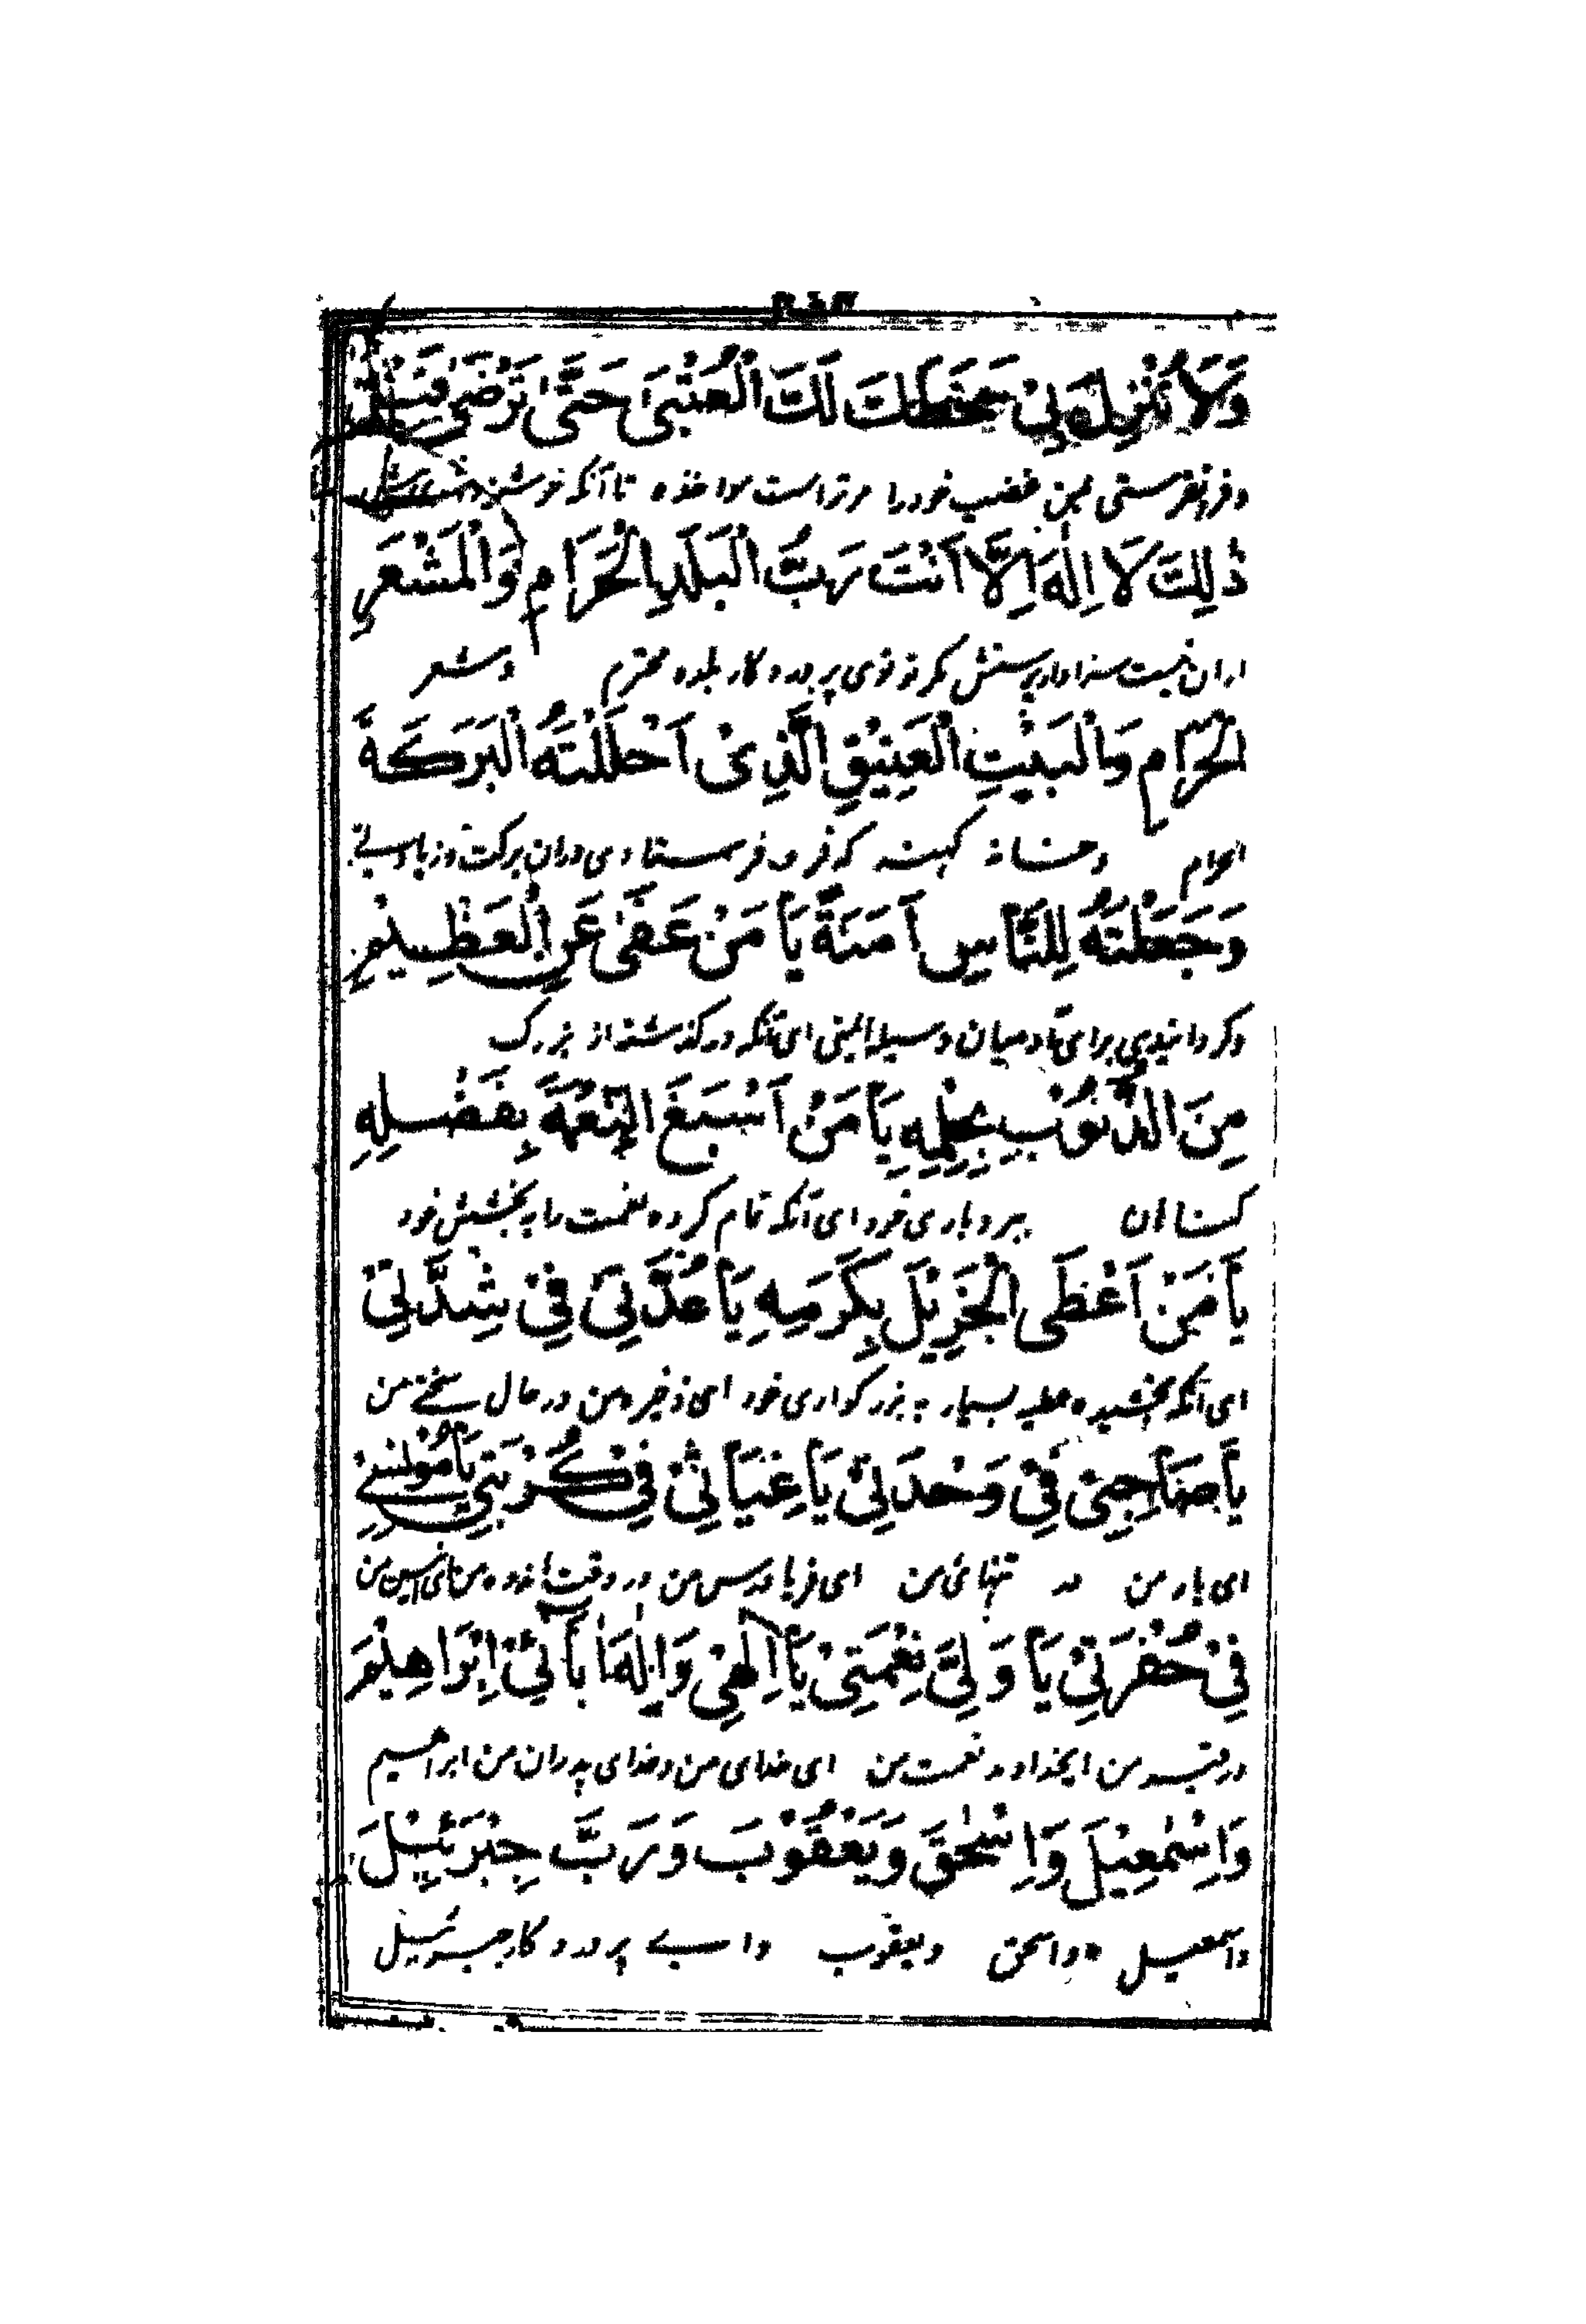 وَلَا تُنْزِلْ بِیْ سَخَطَكَ لَكَ الْعُتْبٰی حَتّٰی تَرْضٰی قَبْلَ
و فرو نفرستی بمن غضب خود را مر تراست مواخذه تا آنکه خوشنود
ذٰلِكَ لَا اِلٰهَ اِلَّا اَنْتَ رَبَّ الْبَلَدِ الْحَرَامِ وَالْمَشْعَرِ
ازان نیست سزاوار پرستش مگر تو توئی پروردگار بلده محترم و مشعر
الْحَرَامِ وَالْبَیْتِ الْعَتِیْقِ الَّذِیْ اَحْلَلْتَهُ الْبَرَكَةَ
الحرام و خانهٔ کهنه که فرو فرستادی دران برکت و زیادتی
وَجَعَلْتَهُ لِلنَّاسِ آمَنَةً یَا مَنْ عَفٰی عَنِ الْعَظِیْمِ
و گردانیدی برای آدمیان وسیلهٔ ایمنی ای آنکه درگذشته از بزرگ
مِنَ الذُّنُوْبِ بِحِلْمِهِ یَا مَنْ اَسْبَغَ النِّعْمَةَ بِفَضْلِهِ
گناهان ببردباری خود ای آنکه تمام کرده نعمت را به بخشش خود
یَا مَنْ اَعْطَی الْجَزِیْلَ بِكَرَمِهِ یَا عُدَّتِیْ فِیْ شِدَّتِیْ
ای آنکه بخشیده عطیه بسیار به بزرگواری خود ای ذخیره من در حال سختی من
یَا صَاحِبِیْ فِیْ وَحْدَتِیْ یَا غِیَاثِیْ فِیْ كُرْبَتِیْ یَا مُوْنِسِیْ
ای یار من در تنهائی من ای فریادرس من در وقت اندوه من ای انیس من
فِیْ حُفْرَتِیْ یَا وَلِیَّ نِعْمَتِیْ یَا اِلٰهِیْ وَاِلٰهَ اٰبَائِیْ اِبْرَاهِیْمَ
در قبر من ای خداوند نعمت من ای خدای من و خدای پدران من ابراهیم
وَاِسْمٰعِیْلَ وَاِسْحٰقَ وَیَعْقُوْبَ وَرَبَّ جِبْرَئِیْلَ
و اسمعیل و اسحق و یعقوب و اے پروردگار جبرئیل